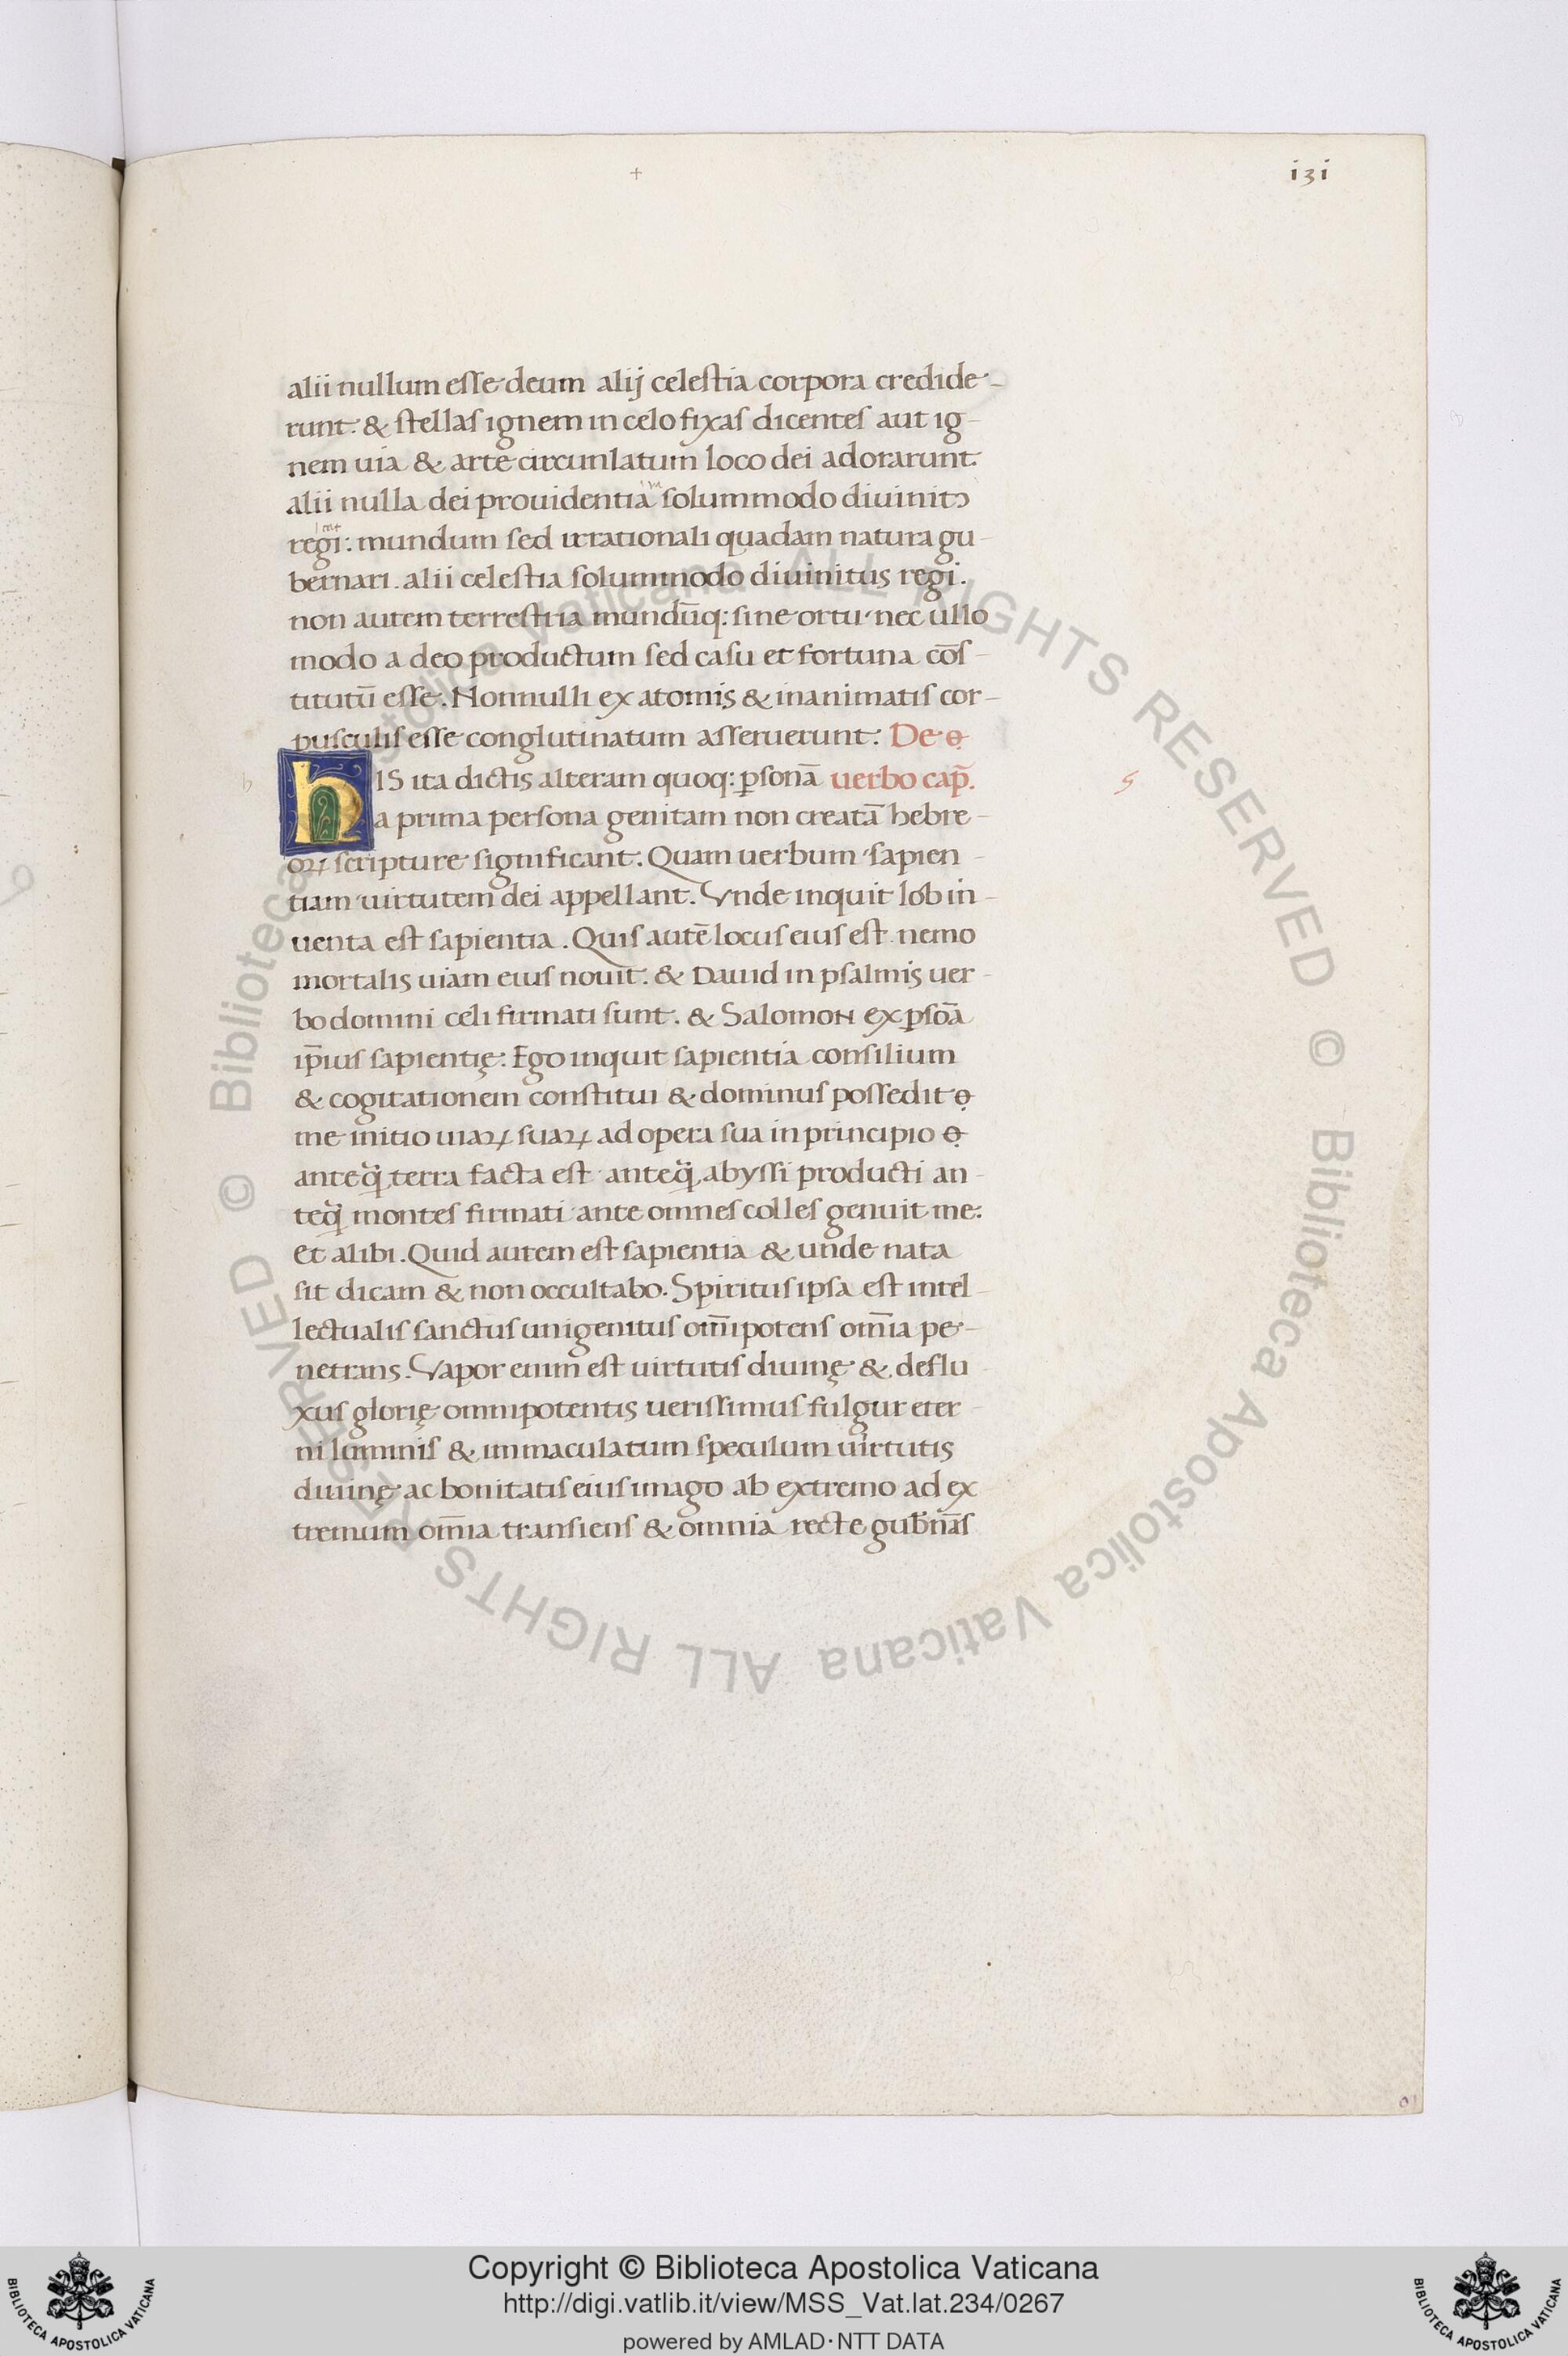 +
i3i
alii nullum esse deum alij celestia corpora credide-
runt: & stellas ignem in celo fixas dicentes aut ig-
nem uia & arte circunlatum loco dei adorarunt.
alii nulla dei prouidentia solummodo diuinitꝰ
regi: mundum sed irrationali quadam natura gu-
bernari. alii celestia solummodo diuinitus regi.
non autem terrestria mundūq: sine ortu nec ullo
modo a deo productum sed casu et fortuna cōs-
titutū esse: Nonnulli ex atomis & inanimatis cor-
pusculis esse conglutinatum asseruerunt: De
hIS ita dictis alteram quoq: ꝑsonā uerbo cap̄. 5
a prima persona genitam non creatā hebre-
oꝝ scripture significant: Quam uerbum sapien-
tiam uirtutem dei appellant. Vnde inquit Iob in-
uenta est sapientia. Quis autē locus eius est nemo
mortalis uiam eius nouit: & Dauid in psalmis uer-
bo domini celi firmati sunt. & Salomon ex ꝑsōa
ip̄ius sapientię: Ego inquit sapientia consilium
& cogitationem constitui & dominus possedit
me initio uiaꝝ suaꝝ ad opera sua in principio
anteq̄ terra facta est anteq̄ abyssi producti an-
teq̄ montes firmati ante omnes colles genuit me:
et alibi. Quid autem est sapientia & unde nata
sit dicam & non occultabo. Spiritus ipsa est intel-
lectualis sanctus unigenitus om̄ipotens om̄ia pe-
netrans. Vapor enim est uirtutis diuinę & deflu-
xus glorię omnipotentis uerissimus fulgur eter-
ni luminis & immaculatum speculum uirtutis
diuinę ac bonitatis eius imago ab extremo ad ex
tremum om̄ia transiens & omnia recte gub̄nās
© Biblioteca Apostolica Vaticana ALL RIGHTS RESERVED © Biblioteca Apostolica Vaticana ALL RIGHTS RESERVED
Copyright © Biblioteca Apostolica Vaticana
http://digi.vatlib.it/view/MSS_Vat.lat.234/0267
powered by AMLAD·NTT DATA
BIBLIOTECA APOSTOLICA VATICANA
BIBLIOTECA APOSTOLICA VATICANA